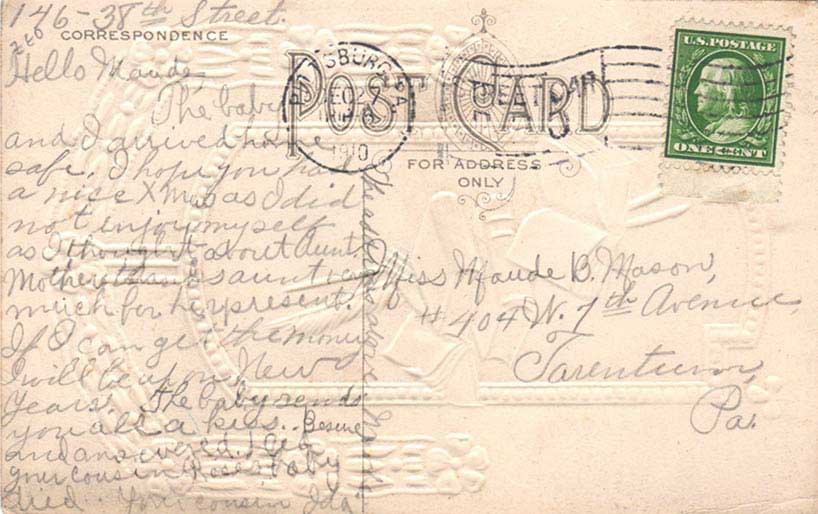 146-38th Street.
CORRESPONDENCE
Hello Maude
The baby
and I arrived home
safe. I hope you had
a nice Xmas as I did
not enjoy myself
as I thought about aunt.
Mother thanks aunt very
much for her present.
If I can get the money
I will be up on New
Years. The baby sends
you all a kiss. Be sure
and answered.
your cousin Rose's baby
died. Your cousin Ida
POST CARD
FOR ADDRESS
ONLY
PITTSBURG, PA.
DEC 27
1910
U.S. POSTAGE
ONE CENT
Miss Maude B. Mason,
#404 W. 7th Avenue
Tarentum,
Pa.